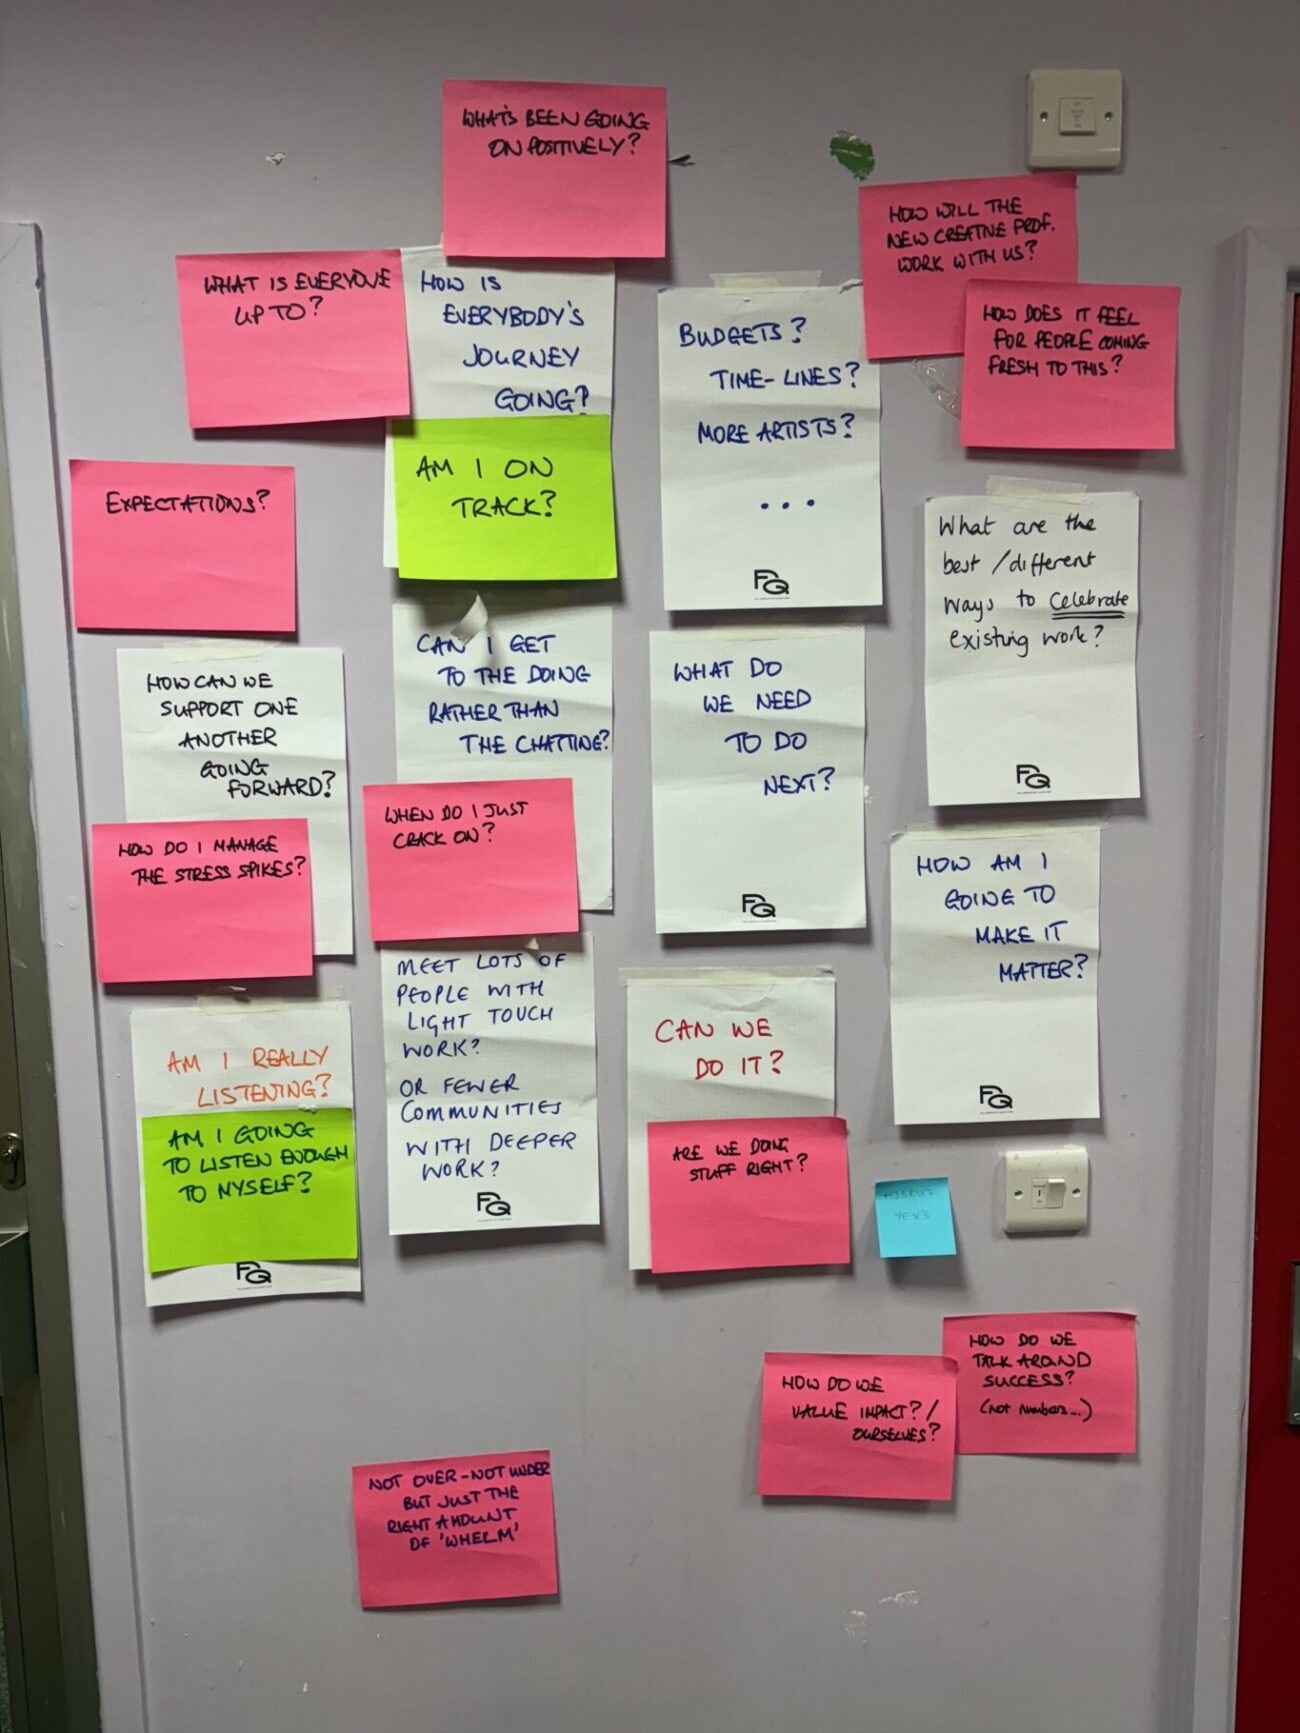 WHAT'S BEEN GOING
ON POSITIVELY?
WHAT IS EVERYONE
UP TO?
HOW IS
EVERYBODY'S
JOURNEY
GOING?
AM I ON
TRACK?
BUDGETS?
TIME-LINES?
MORE ARTISTS?
...
FQ
HOW WILL THE
NEW CREATIVE PROF.
WORK WITH US?
HOW DOES IT FEEL
FOR PEOPLE COMING
FRESH TO THIS?
EXPECTATIONS?
What are the
best / different
ways to celebrate
existing work?
FQ
HOW CAN WE
SUPPORT ONE
ANOTHER
GOING
FORWARD?
HOW DO I MANAGE
THE STRESS SPIKES?
CAN I GET
TO THE DOING
RATHER THAN
THE CHATTING?
WHEN DO I JUST
CRACK ON?
WHAT DO
WE NEED
TO DO
NEXT?
FQ
HOW AM I
GOING TO
MAKE IT
MATTER?
FQ
AM I REALLY
LISTENING?
AM I GOING
TO LISTEN ENOUGH
TO MYSELF?
FQ
MEET LOTS OF
PEOPLE WITH
LIGHT TOUCH
WORK?
OR FEWER
COMMUNITIES
WITH DEEPER
WORK?
FQ
CAN WE
DO IT?
ARE WE DOING
STUFF RIGHT?
YEX3
HOW DO WE
VALUE IMPACT?/
OURSELVES?
HOW DO WE
TALK AROUND
SUCCESS?
(NOT NUMBERS...)
NOT OVER-NOT UNDER
BUT JUST THE
RIGHT AMOUNT
OF 'WHELM'